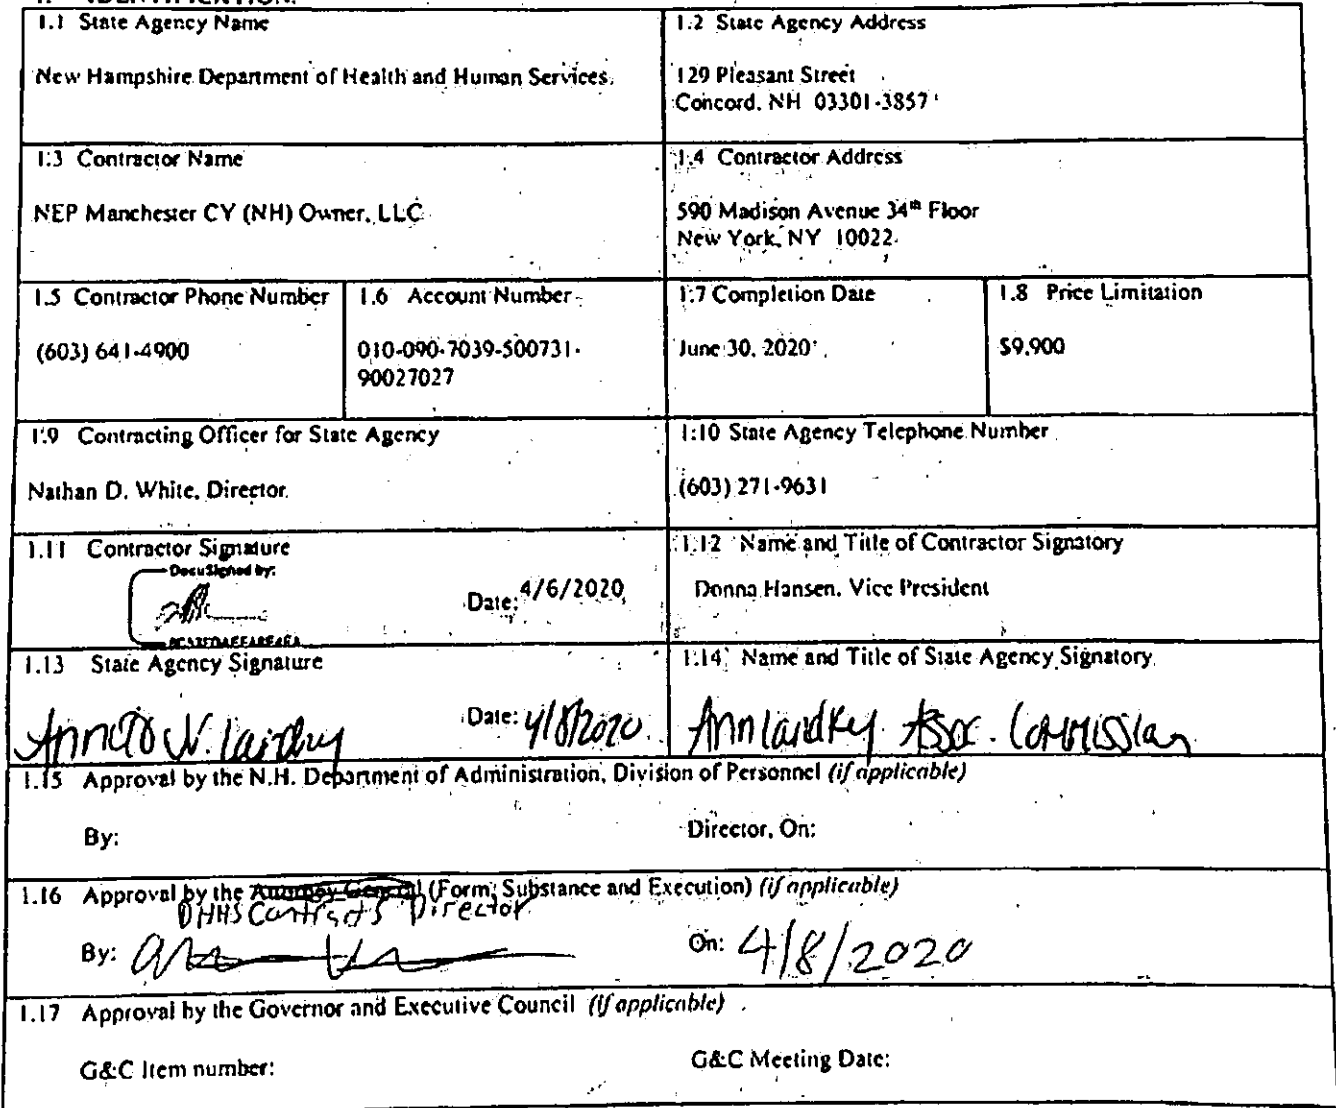 1. IDENTIFICATION.
1.1 State Agency Name
New Hampshire Department of Health and Human Services
1.2 State Agency Address
129 Pleasant Street
Concord, NH 03301-3857
1.3 Contractor Name
NEP Manchester CY (NH) Owner, LLC
1.4 Contractor Address
590 Madison Avenue 34th Floor
New York, NY 10022
1.5 Contractor Phone Number
(603) 641-4900
1.6 Account Number
010-090-7039-500731-
90027027
1.7 Completion Date
June 30, 2020
1.8 Price Limitation
$9,900
1.9 Contracting Officer for State Agency
Nathan D. White, Director
1.10 State Agency Telephone Number
(603) 271-9631
1.11 Contractor Signature
DocuSigned by:
Date: 4/6/2020
1.12 Name and Title of Contractor Signatory
Donna Hansen, Vice President
1.13 State Agency Signature
Date: 4/8/2020
1.14 Name and Title of State Agency Signatory
Ann Landry Assoc. Commission
1.15 Approval by the N.H. Department of Administration, Division of Personnel (if applicable)
By:
Director, On:
1.16 Approval by the Attorney General (Form, Substance and Execution) (if applicable)
DHHS Contracts Director
By:
On: 4/8/2020
1.17 Approval by the Governor and Executive Council (if applicable)
G&C Item number:
G&C Meeting Date: